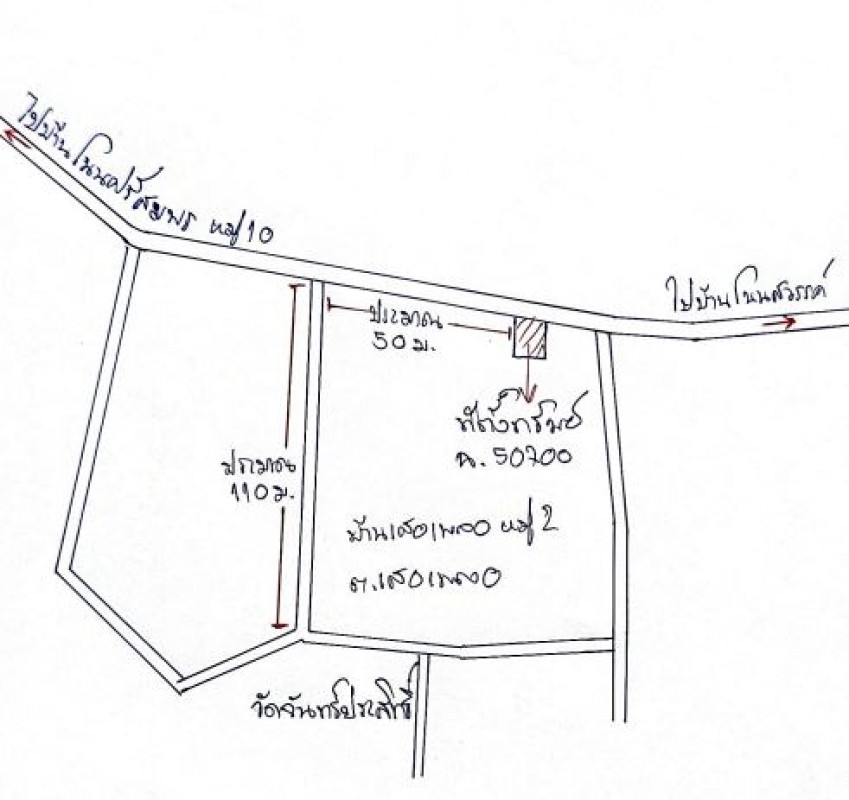 ไปบ้านโนนศรีสมพร หมู่ 10
ไปบ้านโนนสวรรค์
ประมาณ
50 ม.
ที่ตั้งทรัพย์
ฉ. 50700
ประมาณ
110 ม.
บ้านเสอเพลอ หมู่ 2
ต.เสอเพลอ
วัดจันทร์ประสิทธิ์